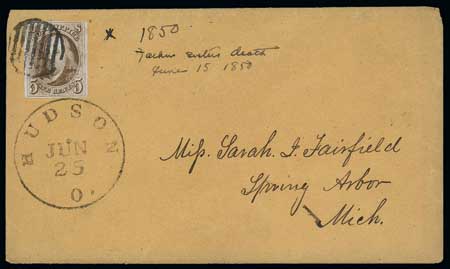 * 1850
Father sisters death
June 15 1850
5 5
HUDSON
JUN
25
O.
Miss. Sarah. I. Fairfield
Spring Arbor
Mich.